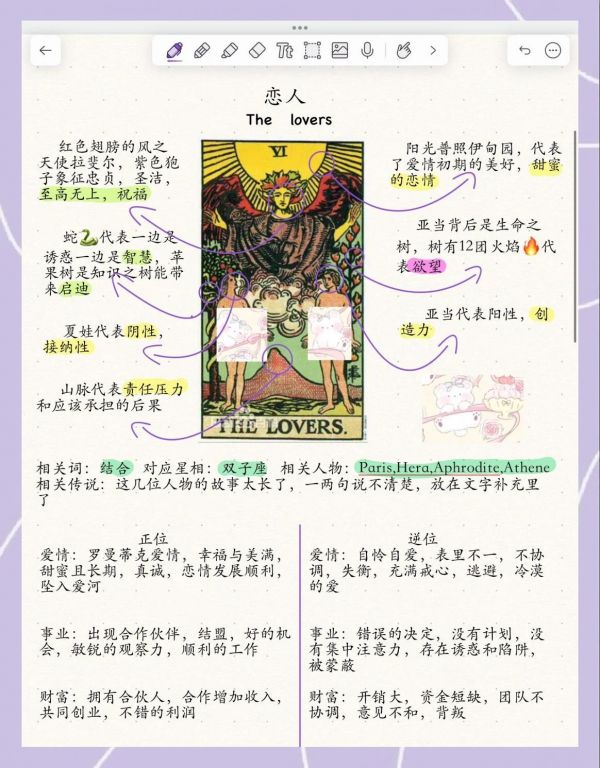 恋人
The lovers
红色翅膀的风之
天使拉斐尔，紫色狍
子象征忠贞，圣洁，
至高无上，祝福
蛇🐍代表一边是
诱惑一边是智慧，苹
果树是知识之树能带
来启迪
夏娃代表阴性，
接纳性
山脉代表责任压力
和应该承担的后果
VI
THE LOVERS.
阳光普照伊甸园，代表
了爱情初期的美好，甜蜜
的恋情
亚当背后是生命之
树，树有12团火焰🔥代
表欲望
亚当代表阳性，创
造力
相关词：结合 对应星相：双子座 相关人物：Paris,Hera,Aphrodite,Athene
相关传说：这几位人物的故事太长了，一两句说不清楚，放在文字补充里
了
正位
爱情：罗曼蒂克爱情，幸福与美满，
甜蜜且长期，真诚，恋情发展顺利，
坠入爱河
事业：出现合作伙伴，结盟，好的机
会，敏锐的观察力，顺利的工作
财富：拥有合伙人，合作增加收入，
共同创业，不错的利润
逆位
爱情：自怜自爱，表里不一，不协
调，失衡，充满戒心，逃避，冷漠
的爱
事业：错误的决定，没有计划，没
有集中注意力，存在诱惑和陷阱，
被蒙蔽
财富：开销大，资金短缺，团队不
协调，意见不和，背叛